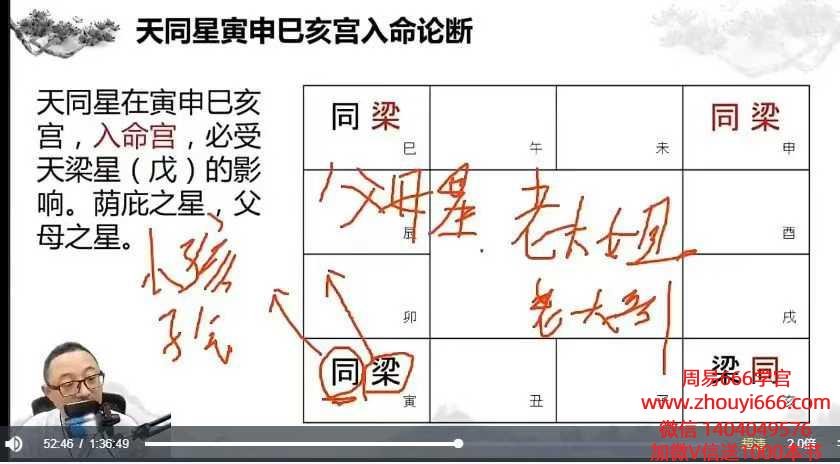 天同星寅申巳亥宫入命论断
天同星在寅申巳亥
宫，入命宫，必受
天梁星（戊）的影
响。荫庇之星，父
母之星。
同 梁
同 梁
巳
午
未
申
父母星
老大姐
辰
酉
小孩
子
老大哥
卯
戌
同 梁
梁 同
寅
丑
子
亥
周易666学官
www.zhouyi666.com
微信 1404049576
加微V信送1000本书
52:46 / 1:36:49
超清
2.0倍